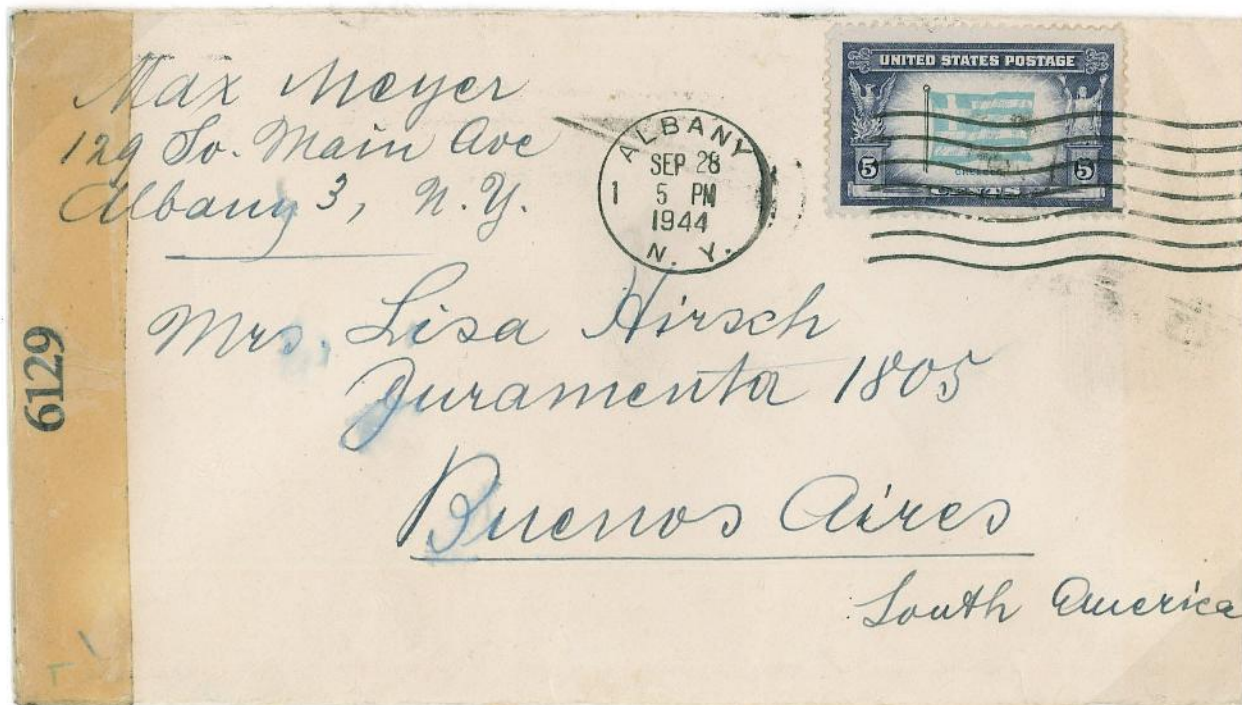 Max Meyer
129 So. Main Ave
Albany 3, N.Y.
ALBANY
SEP 28
1 5 PM
1944
N. Y.
UNITED STATES POSTAGE
5 5
CENTS
6129
Mrs. Lisa Hirsch
Juramenta 1805
Buenos Aires
South America